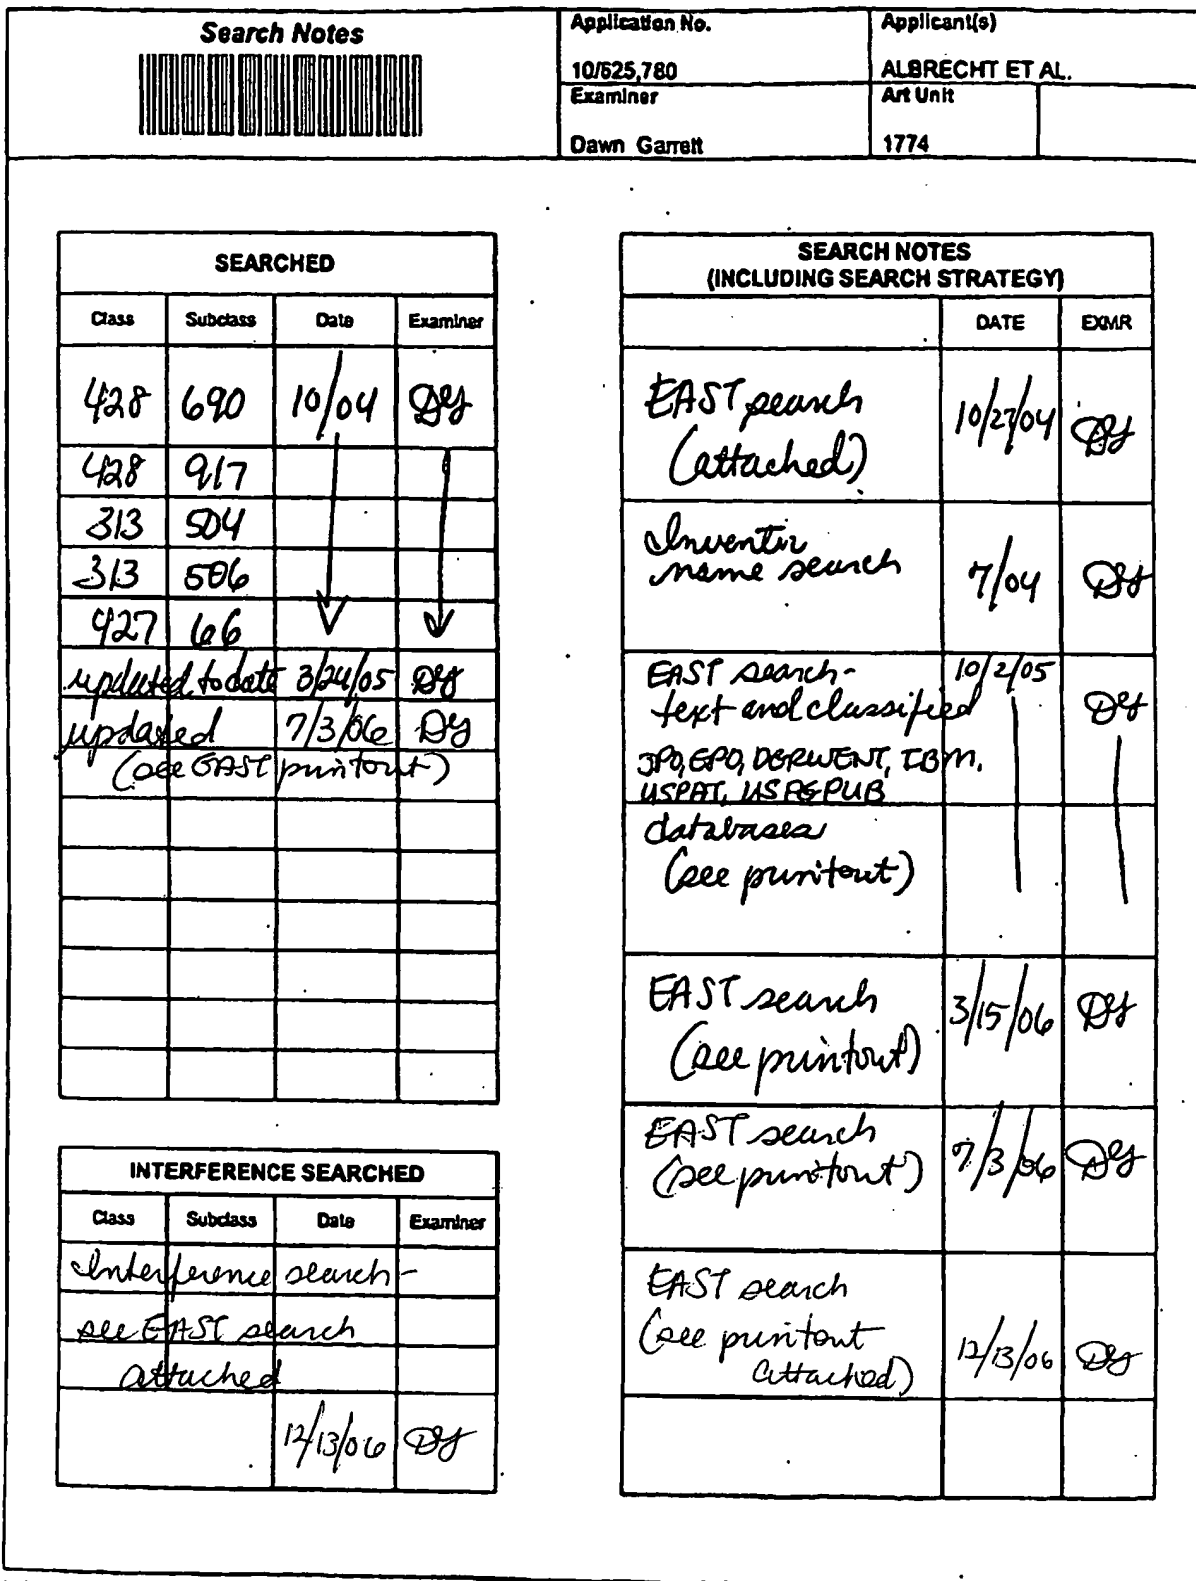 Search Notes
Application No.
10/625,780
Applicant(s)
ALBRECHT ET AL.
Examiner
Dawn Garrett
Art Unit
1774
SEARCHED
Class Subclass Date Examiner
428 690 10/04 DG
428 917
313 504
313 506
427 66
updated to date 3/24/05 DG
updated 7/3/06 DG
(see EAST printout)
INTERFERENCE SEARCHED
Class Subclass Date Examiner
Interference search-
see EAST search
attached
12/13/06 DG
SEARCH NOTES
(INCLUDING SEARCH STRATEGY)
DATE EXMR
EAST search
(attached) 10/27/04 DG
Inventor
name search 7/04 DG
EAST search- 10/2/05
text and classified DG
JPO, EPO, DERWENT, IBM,
USPAT, USPGPUB
databases
(see printout)
EAST search
(see printout) 3/15/06 DG
EAST search
(see printout) 7/3/06 DG
EAST search
(see printout
attached) 12/13/06 DG